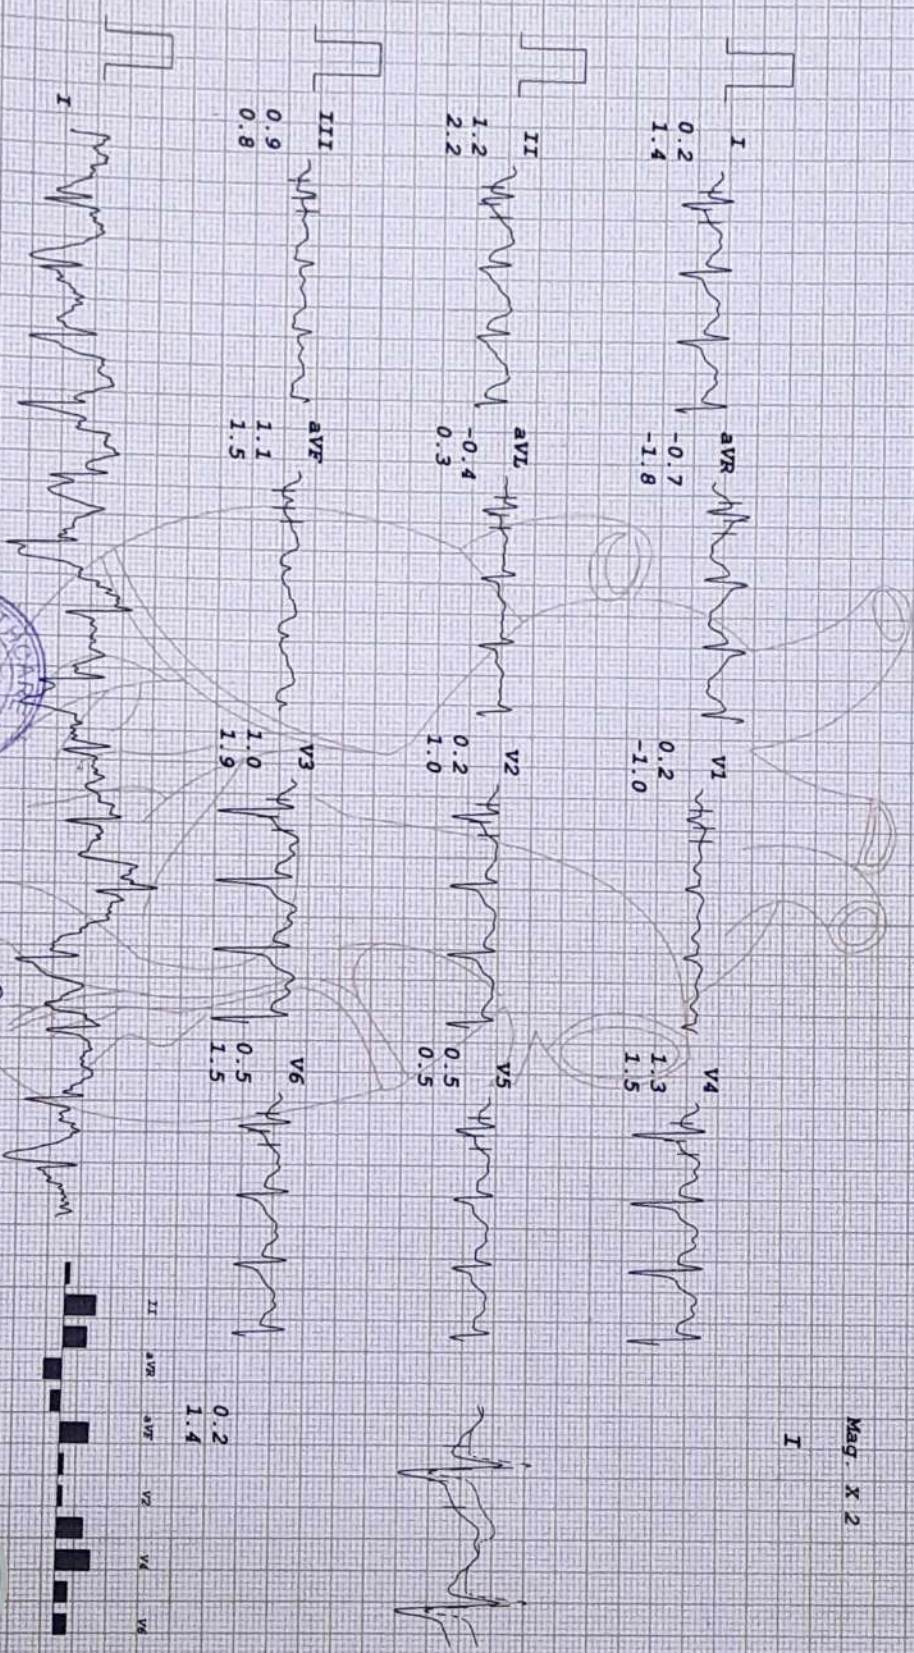 Mag. X 2
I
I
0.2
1.4
aVR
-0.7
-1.8
V1
0.2
-1.0
V4
1.3
1.5
II
1.2
2.2
aVL
-0.4
0.3
V2
0.2
1.0
V5
0.5
0.5
III
0.9
0.8
aVF
1.1
1.5
V3
1.0
1.9
V6
0.5
1.5
0.2
1.4
I
II
aVR
aVF
V2
V4
V6